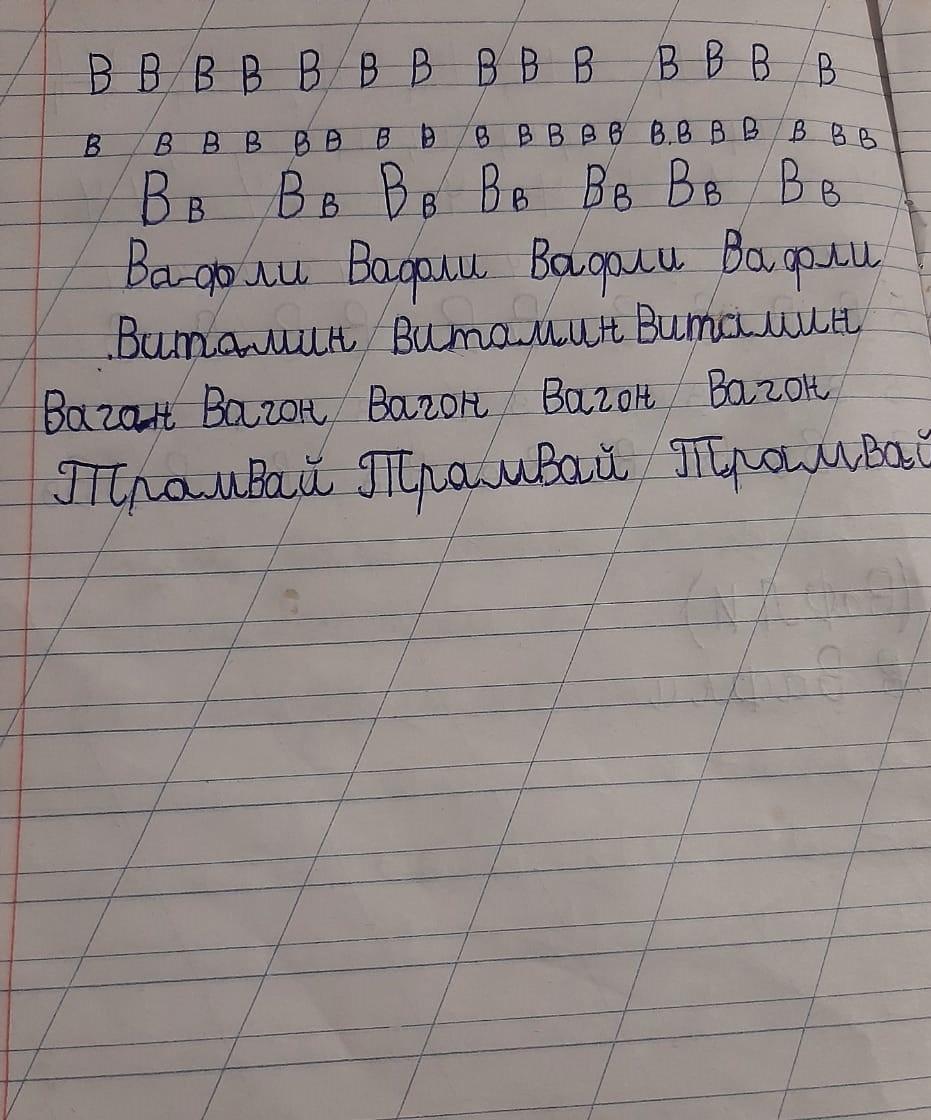 В В В В В В В В В В В В В В
в в в в в в в в в в в в в в в в в в в в
В в В в В в В в В в В в В в
Вафли Вафли Вафли Вафли
Витамин Витамин Витамин
Вагон Вагон Вагон Вагон Вагон
Трамвай Трамвай Трамвай